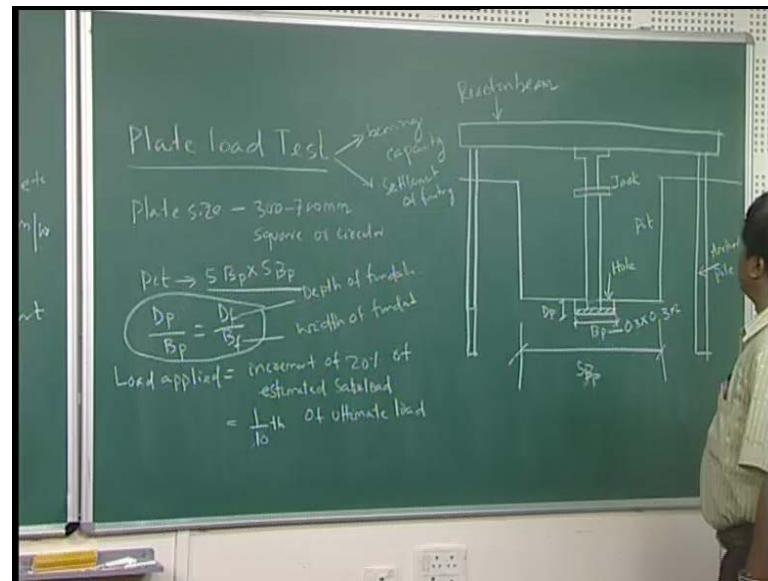 Plate load Test
bearing
capacity
Settlement
of footing
Plate size - 300-700mm
square or circular
Pit → 5Bp x 5Bp
Dp/Bp = Df/Bf
Depth of
width of
Load applied = increment of 20% of
estimated safe load
= 1/10 th of ultimate load
Reaction beam
Jack
Pit
Hole
Anchor
pile
Dp
Bp - 0.3 x 0.3 m
5Bp